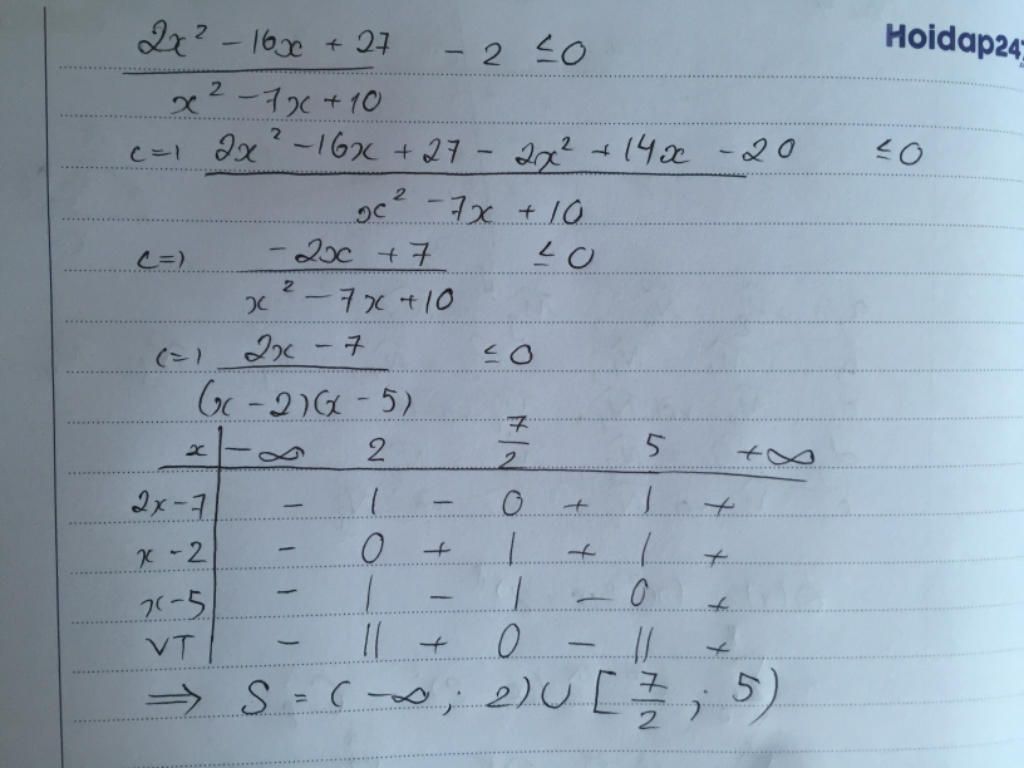 Hoidap247
2x² - 16x + 27 - 2 ≤ 0
x² - 7x + 10
<=> 2x² - 16x + 27 - 2x² + 14x - 20 ≤ 0
x² - 7x + 10
<=> -2x + 7 ≤ 0
x² - 7x + 10
<=> 2x - 7 ≤ 0
(x - 2)(x - 5)
x | -∞ 2 7/2 5 +∞
2x - 7 | - | - 0 + | +
x - 2 | - 0 + | + | +
x - 5 | - | - | - 0 +
VT | - || + 0 - || +
⇒ S = (-∞; 2) ∪ [7/2; 5)